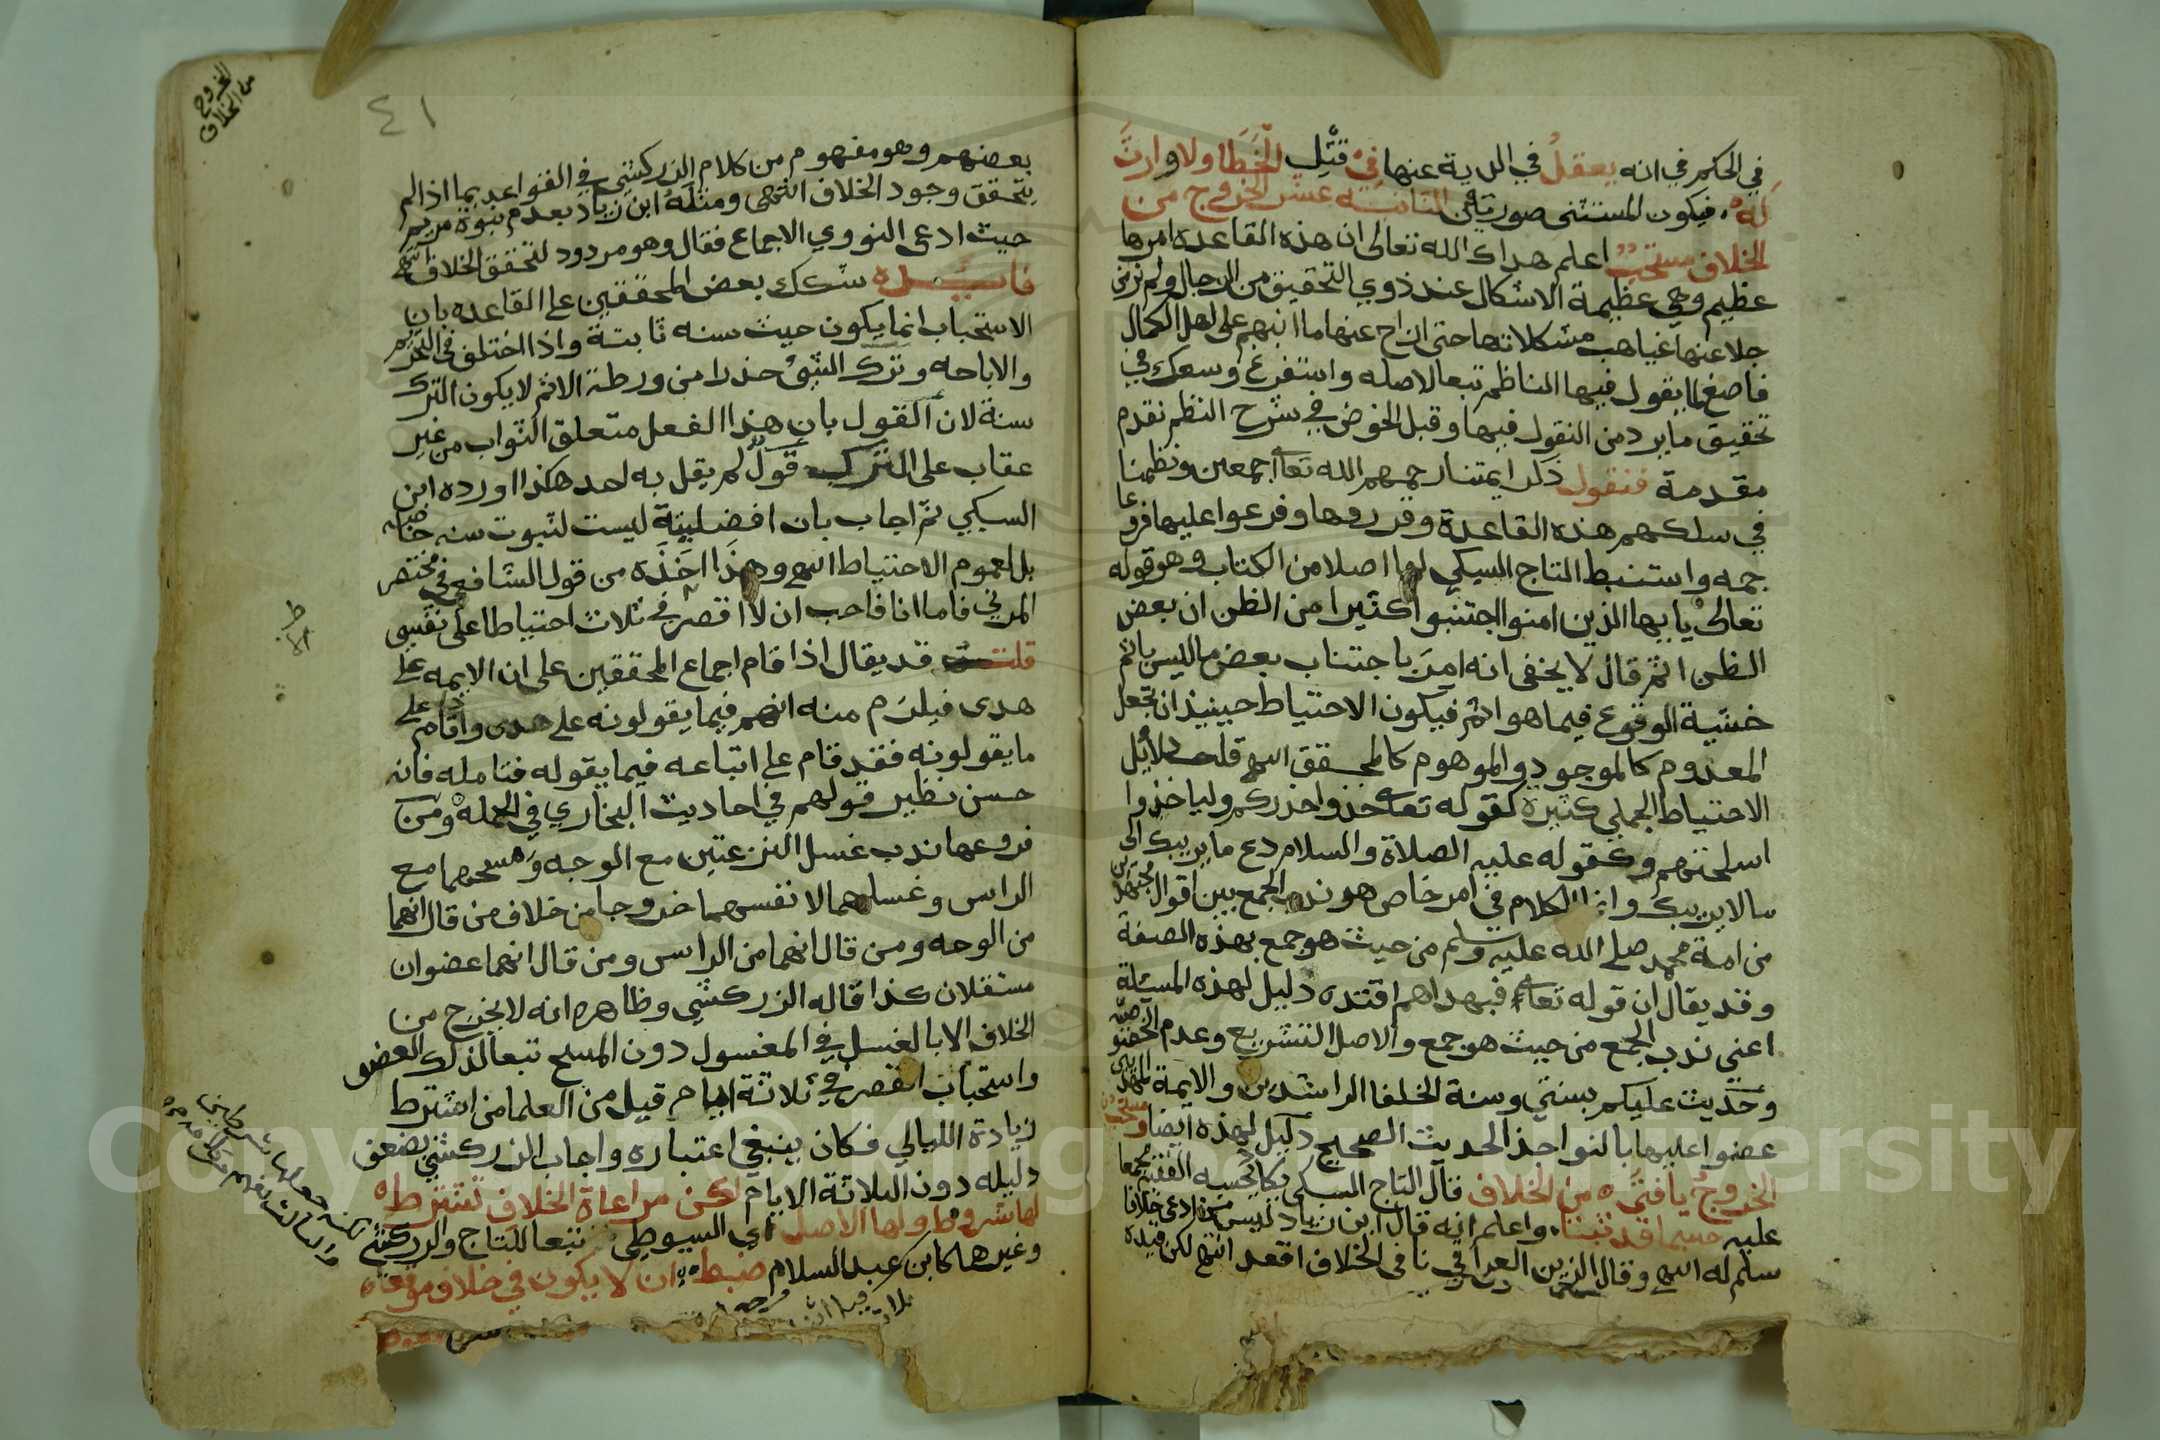 في الحكم في انه يعقل في الدية عنها في قتل الخطا ولا وارث
له فيكون المستثنى صورتين الثانية عشر الخروج من
الخلاف مستحب اعلم هداك الله تعالى ان هذه القاعدة امرها
عظيم وهي عظيمة الاشكال عند ذوي التحقيق من الرجال ولم نر من
جلا عنها غياهب مشكلاتها حتى ازاح عنها ما ابهم على اهل الكمال
فاصغ لما يقول فيها الناظم تبعا لاصله واستفرغ وسعك في
تحقيق ما يرد من النقول فيها وقبل الخوض في شرح النظم نقدم
مقدمة فنقول ذكر ايمتنا رحمهم الله تعا اجمعين ونظمنا
في سلكهم هذه القاعدة وقرروها وفرعوا عليها فروعا
جمه واستنبط التاج السبكي لها اصلا من الكتاب وهو قوله
تعالى يا ايها الذين امنوا اجتنبوا كثيرا من الظن ان بعض
الظن اثم قال لا يخفى انه امر باجتناب بعض ما ليس باثم
خشية الوقوع فيما هو اثم فيكون الاحتياط حينيذ ان تجعل
المعدوم كالموجود والموهوم كالمحقق انتهى قلت دلايل
الاحتياط الجملي كثيرة كقوله تعا خذوا حذركم ولياخذوا
اسلحتهم وكقوله عليه الصلاة والسلام دع ما يريبك الى
ما لا يريبك وانما الكلام في امر خاص هو ندب الجمع بين اقوال مجتهدين
من امة محمد صلى الله عليه وسلم من حيث هو جمع بهذه الصفة
وقد يقال ان قوله تعا فبهداهم اقتده دليل لهذه المسئلة
اعني ندب الجمع من حيث هو جمع والاصل التشريع وعدم الخصوصية
وحديث عليكم بسنتي وسنة الخلفا الراشدين والايمة المهديين
عضوا عليها بالنواجذ الحديث الصحيح دليل لهذه ايضا ومستحب
الخروج يا فتى من الخلاف قال التاج السبكي يكاد يحسبه الفقيه مجمعا
عليه حسبما قد ثبتا واعلم انه قال ابن زياد ليس كل من ادعى خلافا
سلم له انتهى وقال الزين العراقي نافي الخلاف اقعد انتهى لكن قيده
الخروج
من الخلاف
٤١
بعضهم وهو مفهوم من كلام الزركشي في القواعد بما اذا لم
يتحقق وجود الخلاف انتهى ومثله ابن زياد بعدم نبوة مريم
حيث ادعى النووي الاجماع فقال وهو مردود لتحقق الخلاف انتهى
فايدة شكك بعض المحققين على القاعده بان
الاستحباب انما يكون حيث سنه ثابتة واذا اختلف في التحريم
والاباحه وترك الشيء حذرا من ورطة الاثم لا يكون الترك
سنة لان القول بان هذا الفعل متعلق الثواب من غير
عقاب على الترك قول لم يقل به احد هكذا اورده ابن
السبكي ثم اجاب بان افضليته ليست لثبوت سنه خاصه
بل لعموم الاحتياط انتهى وهذا اخذه من قول الشافعي في مختصر
المزني فاما انا فاحب ان لا اقصر في ثلاث احتياطا على نفسي
قلت قد يقال اذا قام اجماع المحققين على ان الايمه على
هدى فيلزم منه انهم فيما يقولونه على هدى واقام على
ما يقولونه فقد قام على اتباعه فيما يقوله فتامله فانه
حسن نظير قولهم في احاديث البخاري في الجمله ومن
فروعها ندب غسل النزعتين مع الوجه ومسحهما مع
الراس وغسلهما لا نفسهما خروجا من خلاف من قال انهما
من الوجه ومن قال انهما من الراس ومن قال انهما عضوان
مستقلان كذا قاله الزركشي وظاهره انه لا يخرج من
الخلاف الا بالغسل في المغسول دون المسح تبعا لذلك العضو
واستحباب القصر في ثلاثة ايام قيل من العلما من اشترط
زيادة الليالي فكان ينبغي اعتباره واجاب الزركشي بضعف
دليله دون الثلاثة الايام لكن مراعاة الخلاف تشترط
لها شروط ولها الاصل اي السيوطي تبعا للتاج والزركشي
وغيرها كابن عبد السلام ضبط ان لا يكون في خلاف موقعه
Copyright © King Saud University